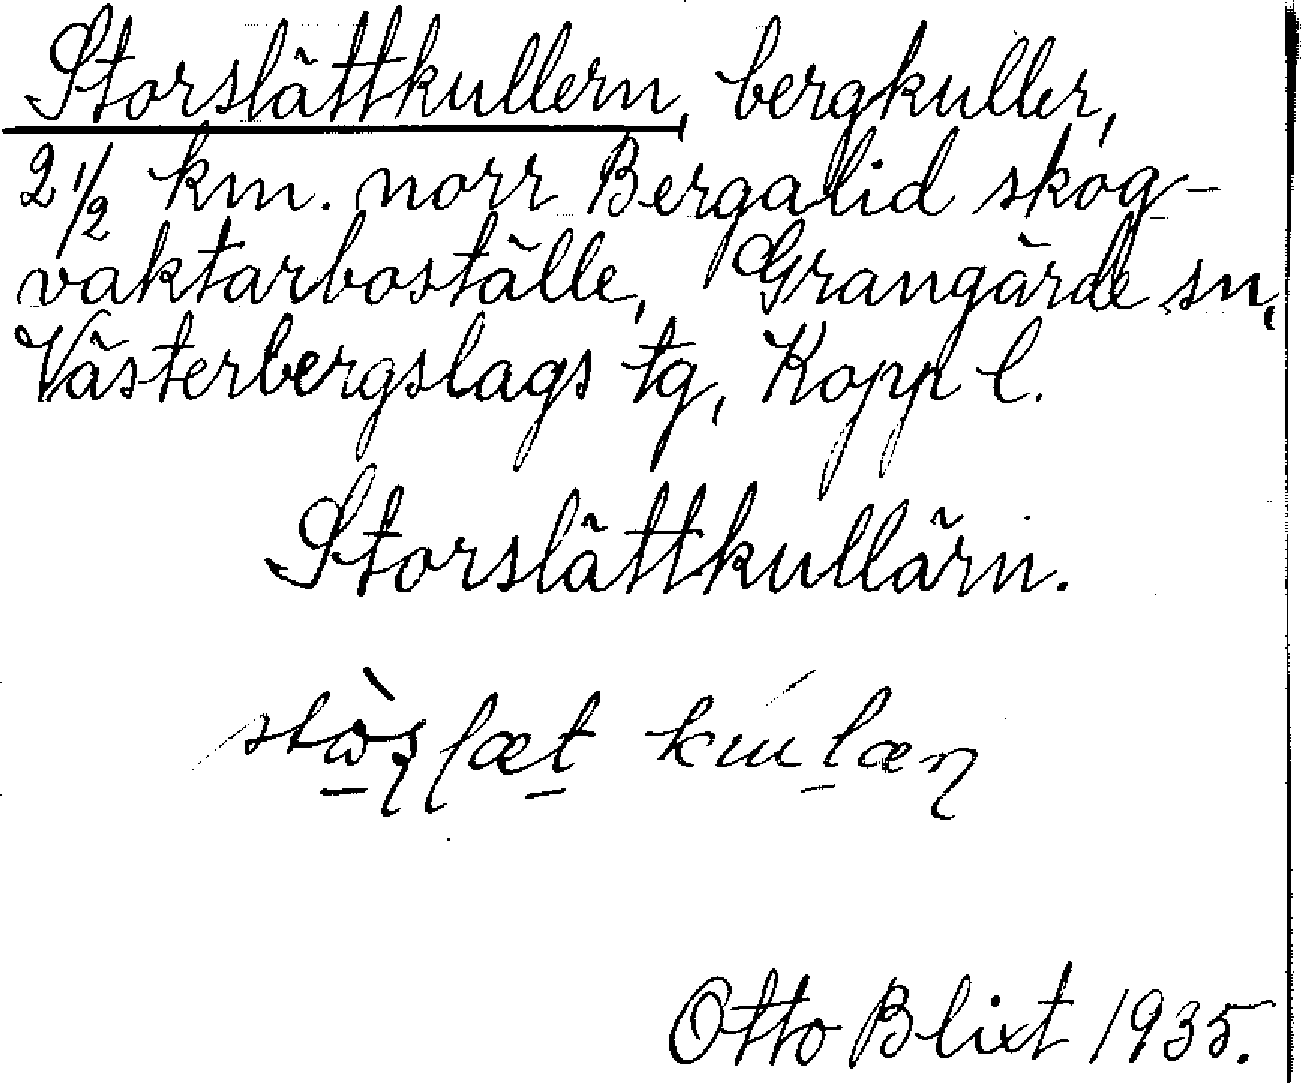 Storslättkullern, bergkuller,
2 1/2 km. norr Bergalid skog-
vaktarboställe, Grangärde sn,
Västerbergslags tg, Kopp l.
Storslättkullärn.
Otto Blixt 1935.